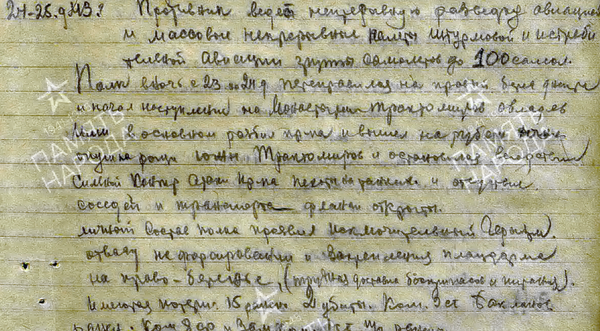 24-25.9.43г. Противник ведет непрерывную разведку авиацией
и массовые непрерывные налеты штурмовой и истреби
тельной авиации группы самолетов до 100 самол.
Полк в ночь с 23 на 24.9 переправился на правый берег Днепра
и начал наступление на Монастырек Трактомиров овладев
ими в основном и вышел на рубеж
опушка рощи южн. Трактомиров и остановился вследствии
сильной контр атаки пр-ка пехоты с танками и отсутствия
соседей и транспорта фланги открыты.
Личный состав полка проявил исключительный героизм
отвагу на форсировании и закреплении плацдарма
на право-бережье, (трудная доставка боеприпасов и питания).
Имеются потери: 15 ранен. 2 убиты. Ком. Бакланов
ПАМЯТЬ НАРОДА
ПАМЯТЬ НАРОДА